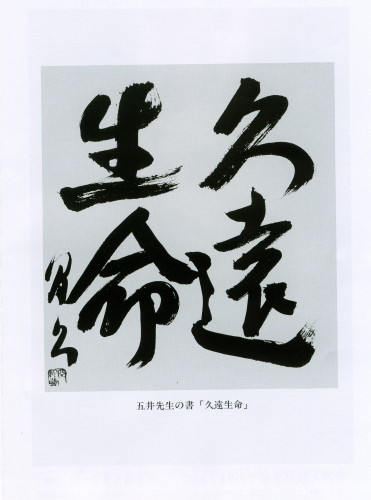 久遠
生命
昌久
五井先生の書「久遠生命」